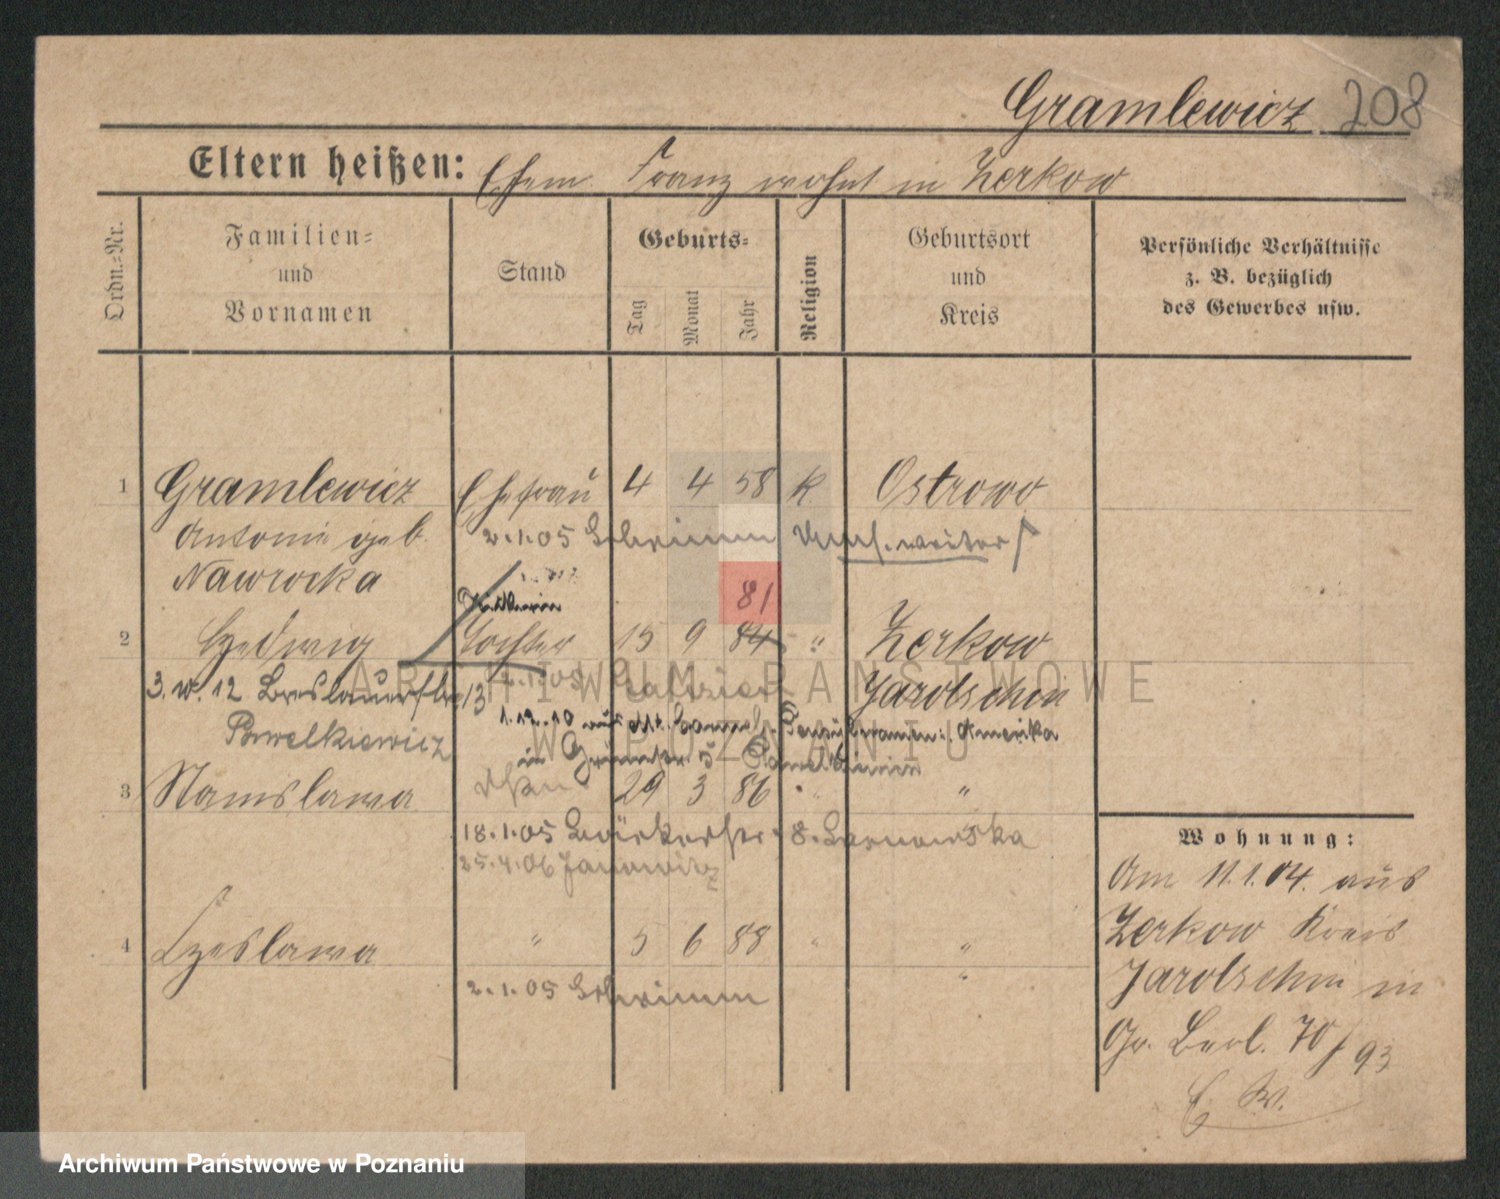 Gramlewicz 208
Eltern heißen: Ehem. Franz wohnt in Zerkow
Ordn.-Nr.
Familien- und Vornamen
Stand
Geburts-
Tag Monat Jahr
Religion
Geburtsort und Kreis
Persönliche Verhältnisse
z. B. bezüglich
des Gewerbes usw.
1 Gramlewicz Ehefrau 4 4 58 k Ostrowo
Antonie geb. 2.1.05 Schrimm weiter
Nawrocka
81
2 Hedwig Tochter 15 9 84 " Zerkow
3. W. 12 Breslauerstr 13 Jarotschin
1.12.10 Amerika
Pawelkiewicz in 5
3 Stanislawa 29 3 86 " "
18.1.05 8.
25.4.06 Janowitz
4 Czeslawa " 5 6 88 " "
2.1.05 Schrimm
Wohnung:
Am 11.1.04. aus
Zerkow Kreis
Jarotschin in
Gr. Berl. 70/93
ARCHIWUM PAŃSTWOWE
W POZNANIU
Archiwum Państwowe w Poznaniu